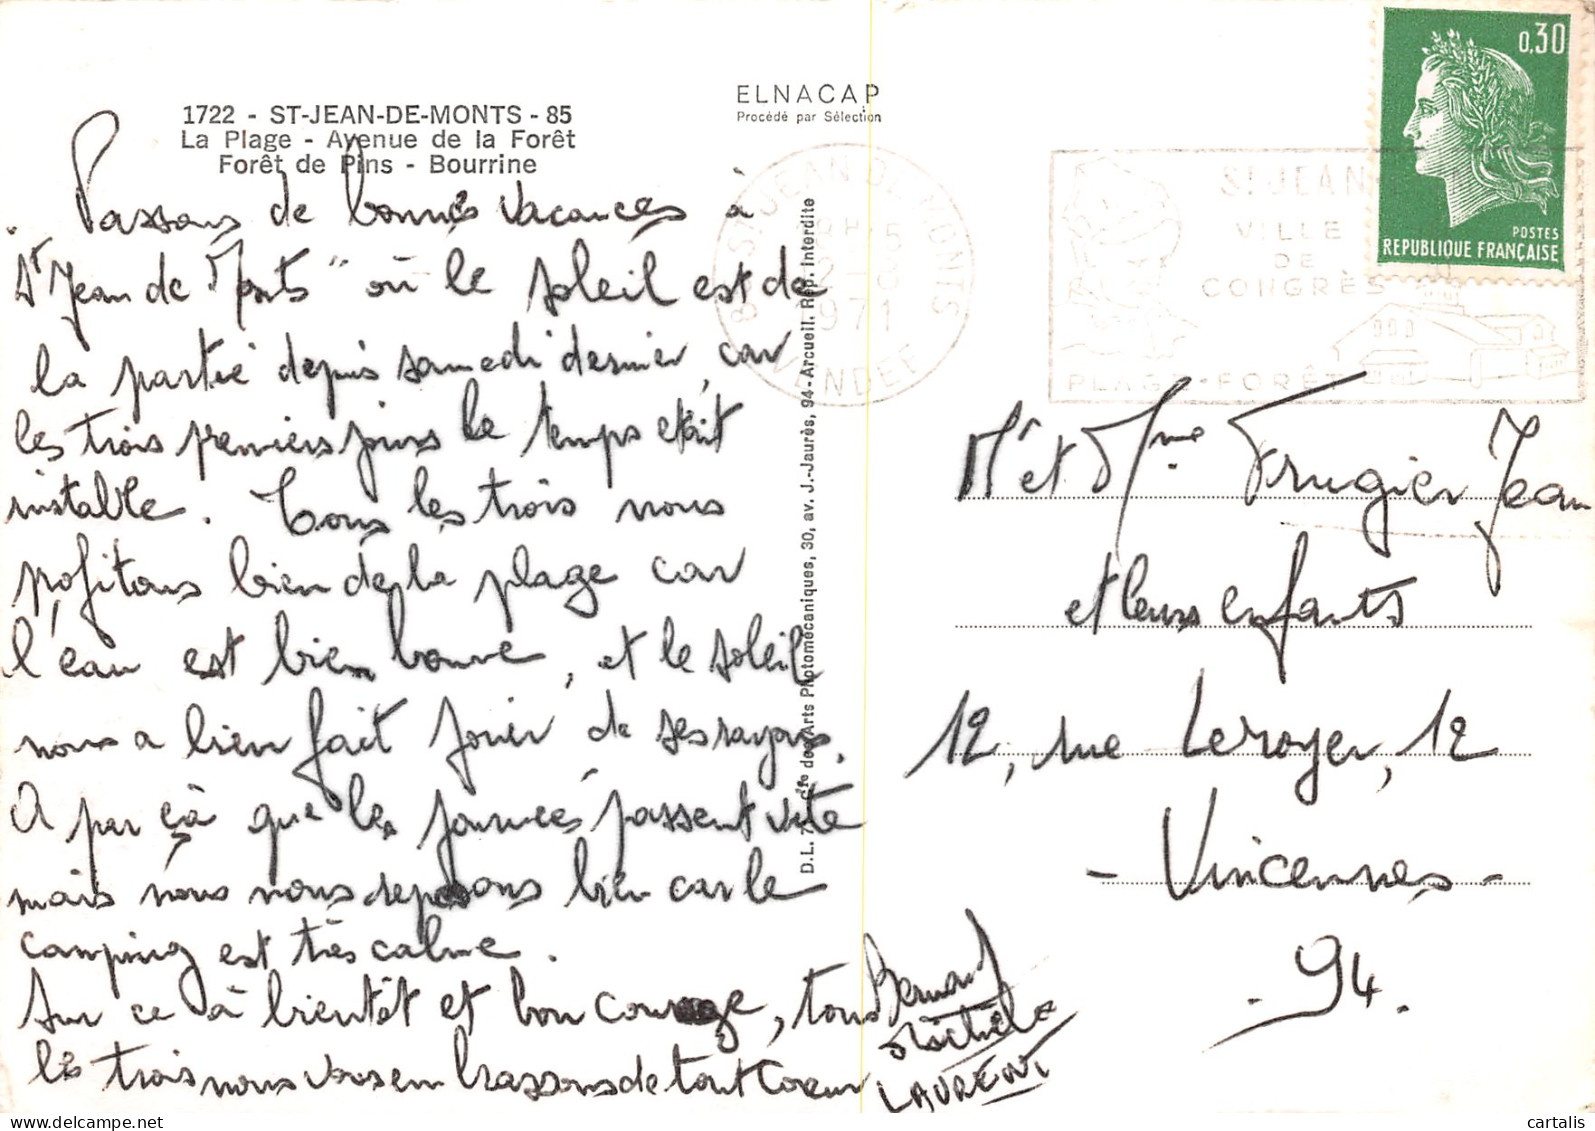 1722 - ST-JEAN-DE-MONTS - 85
La Plage - Avenue de la Forêt
Forêt de Pins - Bourrine
ELNACAP
Procédé par Sélection
Passons de bonnes vacances à
"St Jean de Monts" où le soleil est de
la partie depuis samedi dernier, car
les trois premiers jours le temps était
instable. Tous les trois nous
profitons bien de la plage car
l'eau est bien bonne, et le soleil
nous a bien fait jouir de ses rayons.
A par çà que les journées passent vite
mais nous nous reposons bien car le
camping est très calme.
Sur ce à bientôt et bon courage, tous
les trois nous vous embrassons de tout coeur
Bernard
Michèle
LAURENT
D.L. Cie des Arts Photomécaniques, 30, av. J.-Jaurès, 94-Arcueil. Rep. interdite
ST JEAN DE MONTS
1971
VENDEE
ST JEAN
VILLE
DE
CONGRÈS
PLAGE - FORÊT
0,30
POSTES
REPUBLIQUE FRANÇAISE
Mr et Mme Frugier Jean
et leurs enfants
12, rue Leroyer, 12
- Vincennes -
. 94.
cartalis
www.delcampe.net